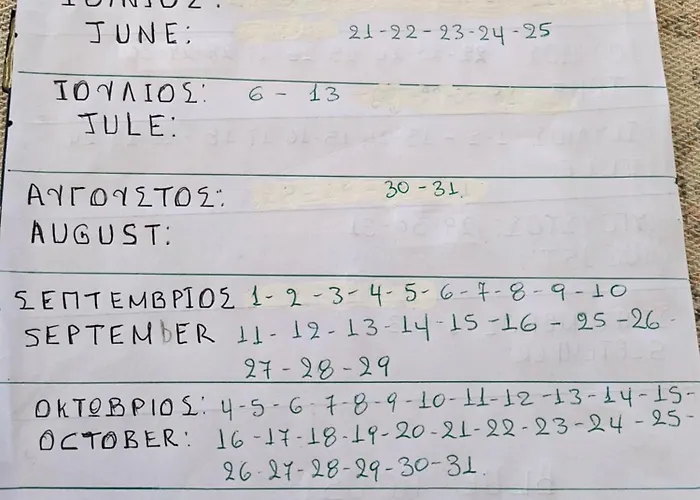 ΙΟΥΝΙΟΣ:
JUNE: 21-22-23-24-25
ΙΟΥΛΙΟΣ: 6 - 13
JULE:
ΑΥΓΟΥΣΤΟΣ: 30-31.
AUGUST:
ΣΕΠΤΕΜΒΡΙΟΣ 1-2-3-4-5-6-7-8-9-10
SEPTEMbER 11-12-13-14-15-16-25-26
27-28-29
ΟΚΤΩΒΡΙΟΣ: 4-5-6-7-8-9-10-11-12-13-14-15-
OCTOBER: 16-17-18-19-20-21-22-23-24-25-
26-27-28-29-30-31.